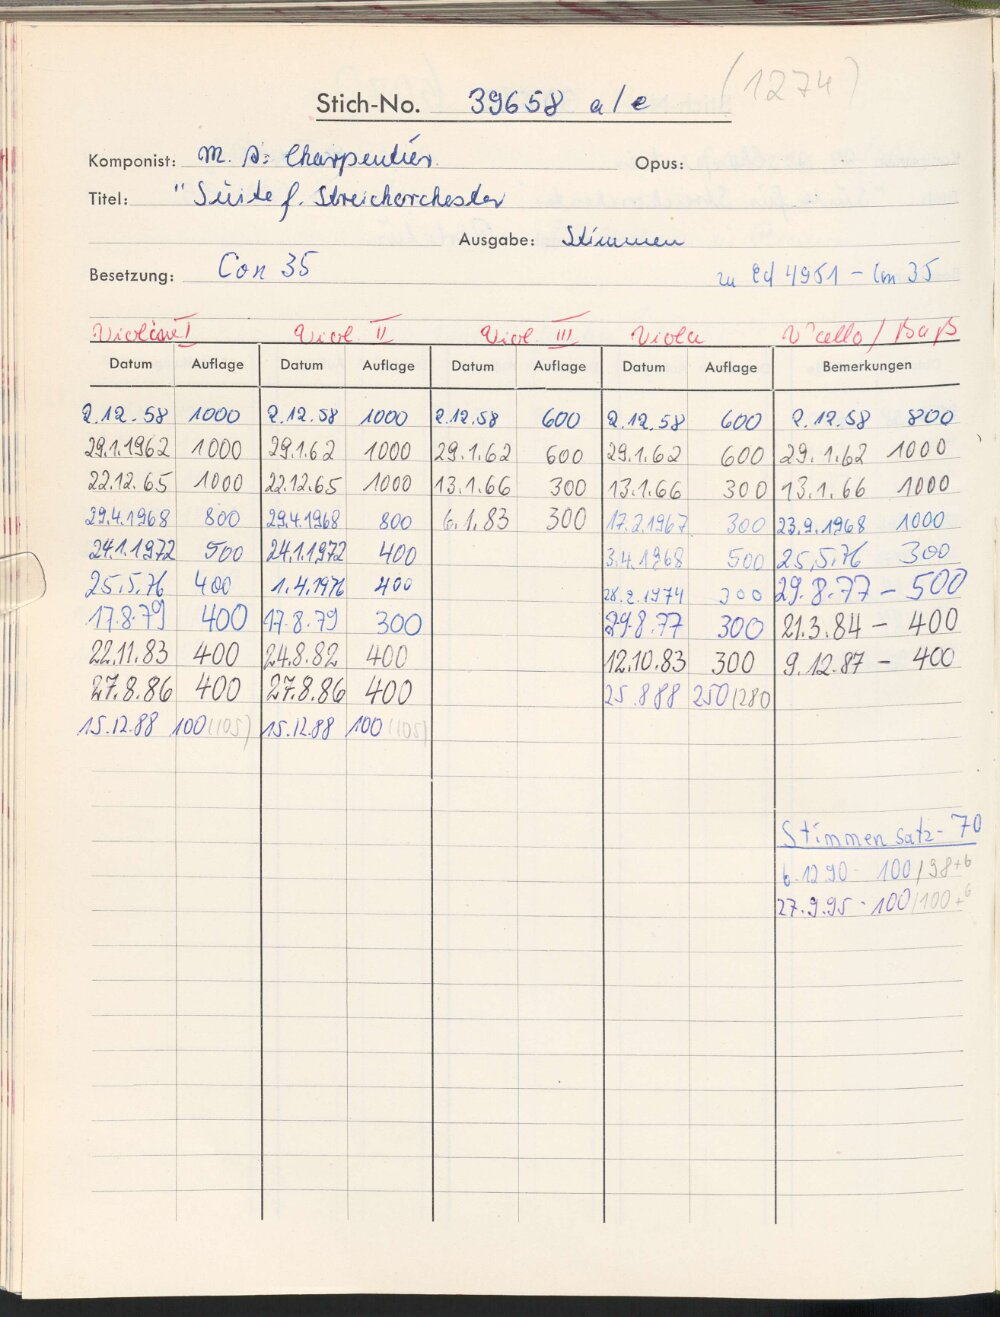 (1274)
Stich-No. 39658 a/e
Komponist: M. A. Charpentier Opus:
Titel: "Suite f. Streichorchester
Ausgabe: Stimmen
Besetzung: Con 35 zu Ed 4951 - Con 35
Violine I Viol. II Viol. III Viola V'cello / Baß
Datum Auflage Datum Auflage Datum Auflage Datum Auflage Bemerkungen
2.12.58 1000 2.12.58 1000 2.12.58 600 2.12.58 600 2.12.58 800
29.1.1962 1000 29.1.62 1000 29.1.62 600 29.1.62 600 29.1.62 1000
22.12.65 1000 22.12.65 1000 13.1.66 300 13.1.66 300 13.1.66 1000
29.4.1968 800 29.4.1968 800 6.1.83 300 17.2.1967 300 23.9.1968 1000
24.1.1972 500 24.1.1972 400 3.4.1968 500 25.5.76 300
25.5.76 400 1.4.1976 400 28.2.1974 300 29.8.77 - 500
17.8.79 400 17.8.79 300 29.8.77 300 21.3.84 - 400
22.11.83 400 24.8.82 400 12.10.83 300 9.12.87 - 400
27.8.86 400 27.8.86 400 25.8.88 250/280
15.12.88 100 (105) 15.12.88 100 (105)
Stimmensatz - 70
6.12.90 - 100/98+6
27.9.95 - 100/100+6